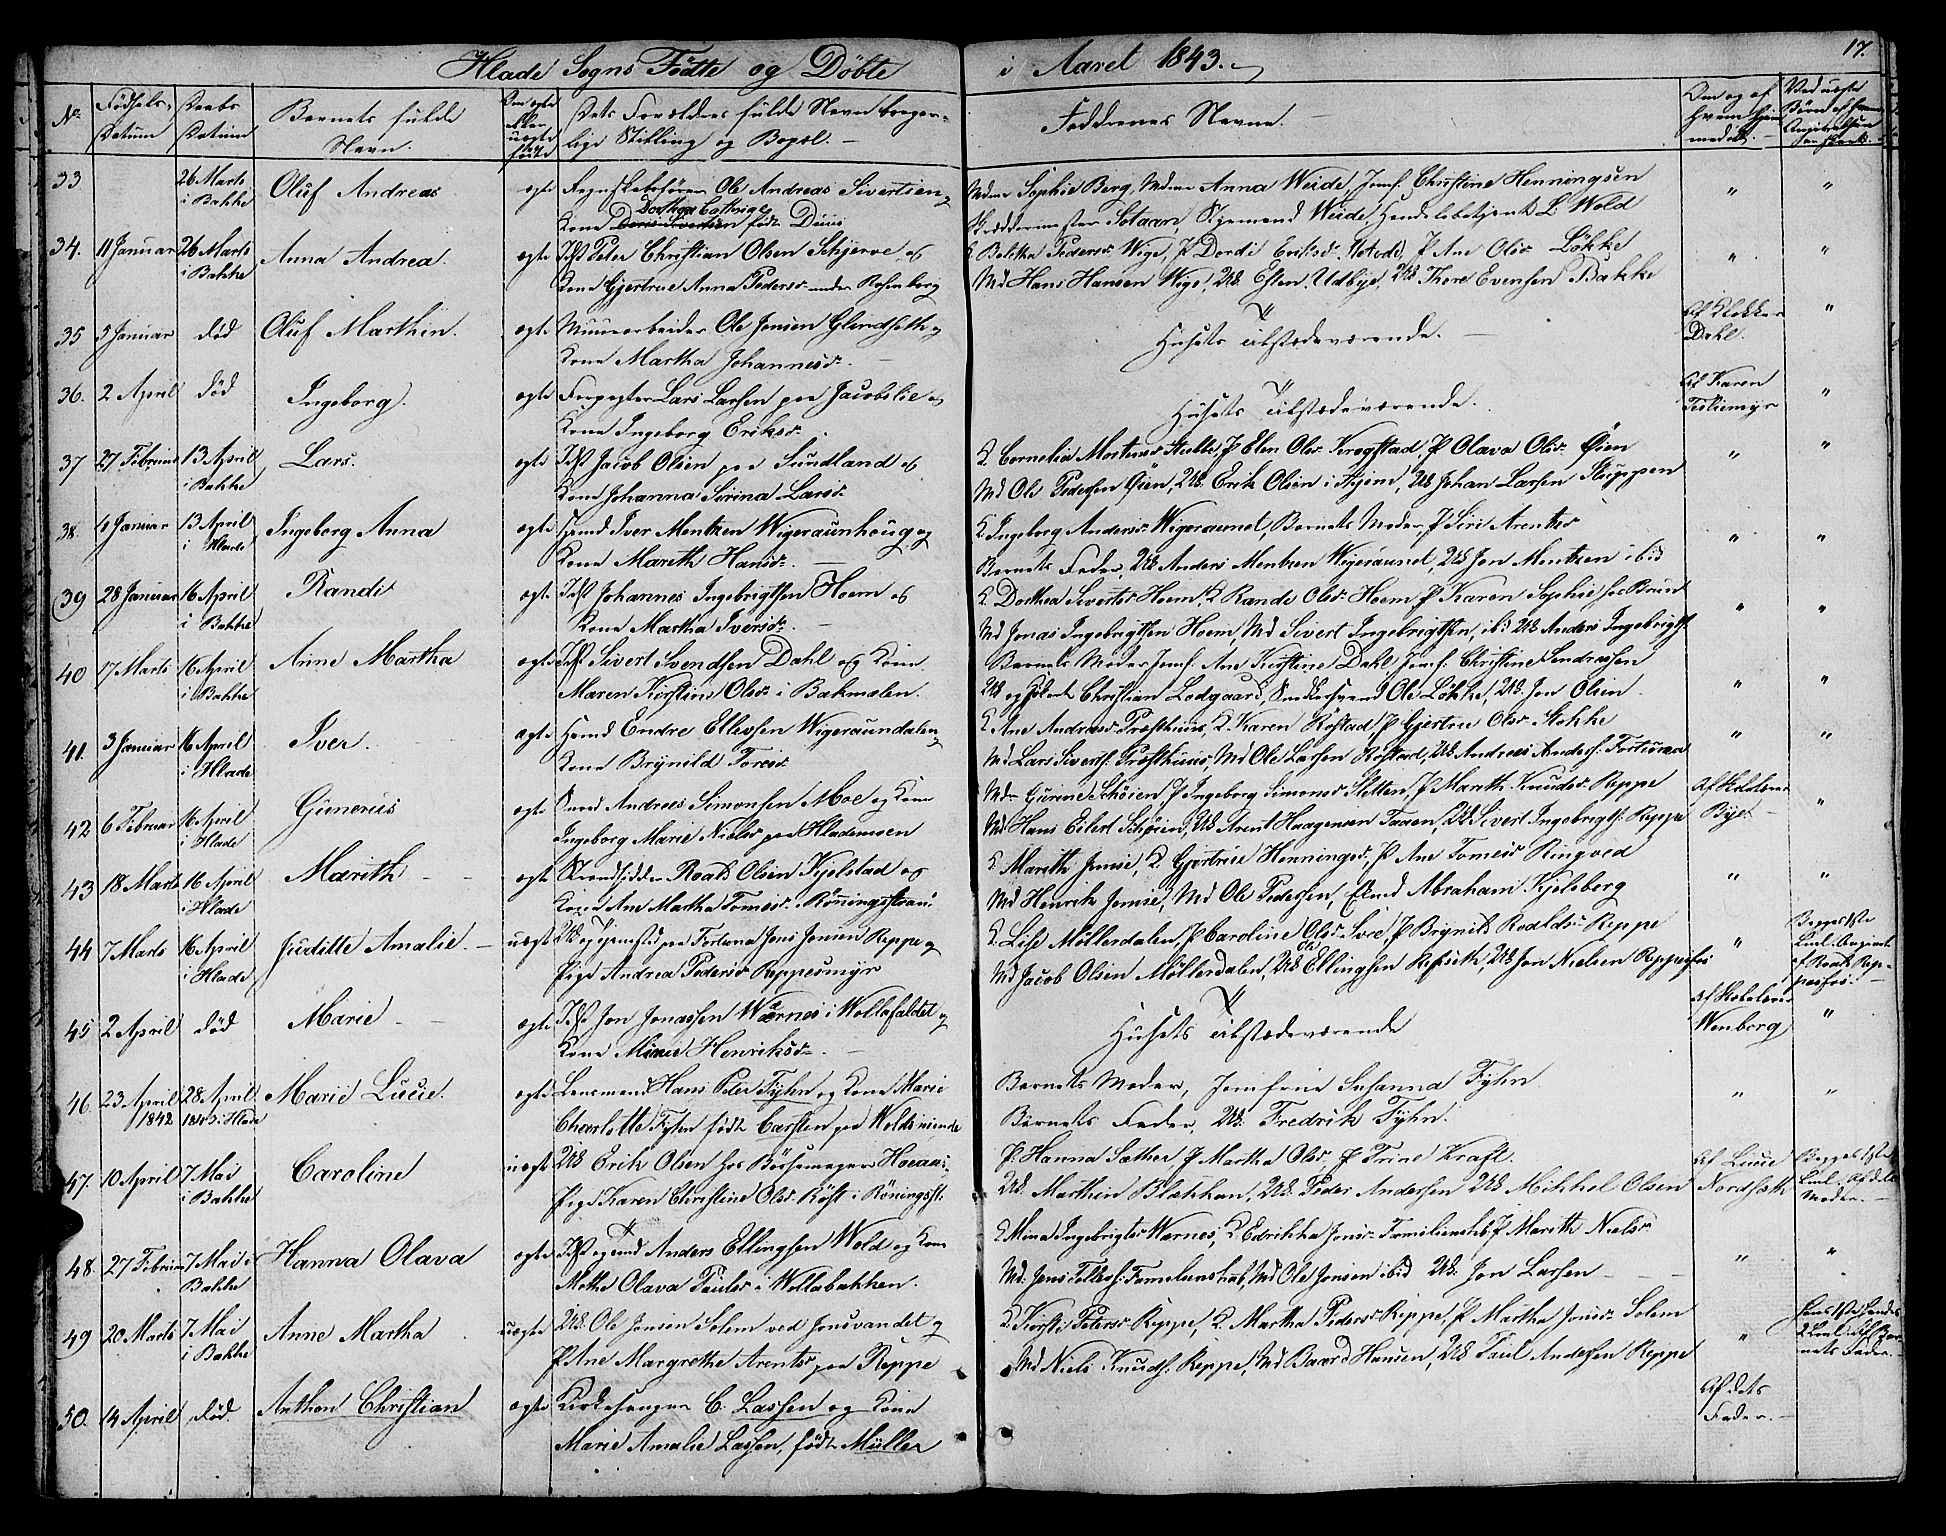 Hlade Sogns Fødte og Døbte i Aaret 1843.
17.
No
Fødsels-Datum
Daabs Datum
Barnets fulde Navn.
Om ægte eller uægte fødte
Dets Forældres fulde Navn borgerlige Stilling og Bopæl.
Faddernes Navne.
Om og af hvem hjemmedøbt.
33
26 Marts i Bakke
Oluf Andreas
ægte
Ole Andreas Sivertsen og
Kone Dorthea født Duus
Mdme Sophie Berg, Mdme Anna Weide, Jomf. Christine Henningsen
Sotaan, Weide, Handelsbetjent L. Wold
"
"
34.
11 Januar
26 Marts i Bakke
Anna Andrea.
ægte
Inst Peter Christian Olsen Schjerve og
Kone Gjertrue Anna Pedersd. under Rosenborg
Pedersd. Wige, P Dordi Eriksd. P Ane Olsd. Løkke
Md Hans Hansen Wige, Uk. Esten Udbye, Uk Thore Evensen Bakke
"
"
35
3 Januar
død
Oluf Marthin.
ægte
Muurarbeider Ole Jensen Glindseth og
Kone Martha Johannesd.
Husets Tilstædeværende.
Af Klokker Dahl.
"
36.
2 April
død
Ingeborg.
ægte
Forpagter Lars Larsen paa Jacobslie og
Kone Ingeborg Eriksd.
Husets Tilstædeværende.
Af Karen
"
37
27 Februar
13 April i Bakke
Lars.
ægte
Inst Jacob Olsen paa Sundland og
Kone Johanna Serina Larsd.
K. Cornelia P Elen Olsd. Krogstad, P Olava Olsd. Øien
Md Ole Pedersen Øien, Uk. Erik Olsen i Uk Johan Larsen Sluppen
"
"
38.
4 Januar
13 April i Hlade
Ingeborg Anna
ægte
Iver Mentzen Wigeraunhoug og
Kone Mareth Hansd.
K Ingeborg Andersd. Wigeraunet, Barnets Moder, P Siri Arentsd
Barnets Fader, Uk Anders Mentzen Wigeraunet, Uk Jon Mentzen ibid
"
"
39
28 Januar
16 April i Bakke
Randi
ægte
Inst Johannes Ingebrigtsen Hoem og
Kone Martha Iversd.
K. Dorthea Sivertsd Hoem, K Randi Olsd. Hoem P Karen Sophie hos Bruun
Md Jonas Ingebrigtsen Hoem, Md Sivert Ingebrigtsen, ibid Uk Anders Ingebrigts.
"
"
40
17 Marts
16 April i Bakke
Anne Martha
ægte
Inst Sivert Svendsen Dahl og Kone
Maren Kirstine Olsd. i Bakmalen.
Barnets Moder Jomf. Ane Kirstine Dahl Jomf. Christine Endressen
Uk og Christian Lodgaard, Ole Løkke, Uk. Jon Olsen.
"
"
41.
3 Januar
16 April i Hlade
Iver.
ægte
Endre Ellevsen Wigeraundalen og
Kone Brynild Toresd
K Ane Andersd Præsthuus, K. Karen Røstad P Gjertrue Olsd. Stokke
Md Lars Siverts. Præsthuus, Md Ole Larsen Røstad, Uk Andreas Anders. Fortuna
"
"
42
6 Februar
16 April i Hlade
Gunerius
ægte
Andreas Simonsen Moe og Kone
Ingeborg Marie Nielsd paa Hlademoen
Mdme Gurine Schøien, P Ingeborg Simonsd Slotten, P Marith Knudsd. Reppe
Md Hans Eilert Schøien, Uk. Arent Haagensen Taaen, Uk Sivert Ingebrigts. Reppe
Bye
"
43
18 Marts
16 April i Hlade
Marith
ægte
Strandsidder Roald Olsen Kjelstad og
Kone Ane Martha Tomesd. Rønningsstrand
K. Marith K. Gjertrue Henningsd. P Ane Tomesd Ringved
Md Henrik Md Ole Pedersen, Abraham Kjelsberg
"
"
44
7 Marts
16 April i Hlade
Juditte Amalie.
uægt
Uk. paa Fortuna Jens Jensen Reppe og
Pige Andrea Pedersd Reppesmyr
K. Lise Møllerdalen, P Caroline Olsd. P Brynild Roaldsd. Reppe
Md Jacob Olsen Møllerdalen, Uk Ole Ellingsen Uk Jon Nielsen Reppesfos
"
Begges 1ste Leier. Angivet af Roald Reppesfos.
45
2 April
død
Marie
ægte
Inst Jon Jonassen Wærnes i Wollafaldet og
Kone Henriksd.
Husets Tilstædeværende
Af Wenberg
"
46
23 April 1842
28 April 1843 i Hlade
Marie Lucie.
ægte
Lensmand Hans Peter Fyhn og Kone Marie
Charlotte Fyhn født Carsten paa Woldsminde
Barnets Moder, Jomfrue Susanna Fyhn
Barnets Fader, Uk. Fredrik Fyhn.
"
"
47.
10 April
7 Mai i Bakke
Caroline
uægt
Uk Erik Olsen hos Bøssemager
Pige Karen Christine Olsd. Røst i Røningsst.
P. Hanna Sæther, P Martha Olsd, P Trine Kraft.
Uk. Marthin Blekkan, Uk. Peder Andersen Uk Mikkel Olsen
Af Lucie Nordseth
Begges 1ste Leier. Af dets Moder.
48.
27 Februar
7 Mai i Bakke
Hanna Olava
ægte
Anders Ellingsen Wold og Kone
Mette Olava Paulsd i Wollabakken.
K Mina Ingebrigtsd Wærnes, K. Jonsd. P Marith Nielsd
Md. Jens Md Ole Jonsen ibid Uk. Jon Larsen
"
"
49
20 Marts
7 Mai i Bakke
Anne Martha
uægte
Uk. Ole Jonsen Solem ved Jonsvandet og
P. Ane Margrethe Arentsd paa Reppe
K. Kirsti Petersd Reppe, K. Martha Pedersd. Reppe, P Martha Jonsd Solem
Md Niels Knuds. Reppe, Md Baard Hansen, Uk Paul Andersen Reppe
"
Hans 1ste hendes 2 Leier. Af Barnets Fader.
50.
14 April
død.
Anthon Christian
ægte
Kirkesanger C. Lassen og Kone
Marie Amalie Lassen, født Müller
Af dets Fader.